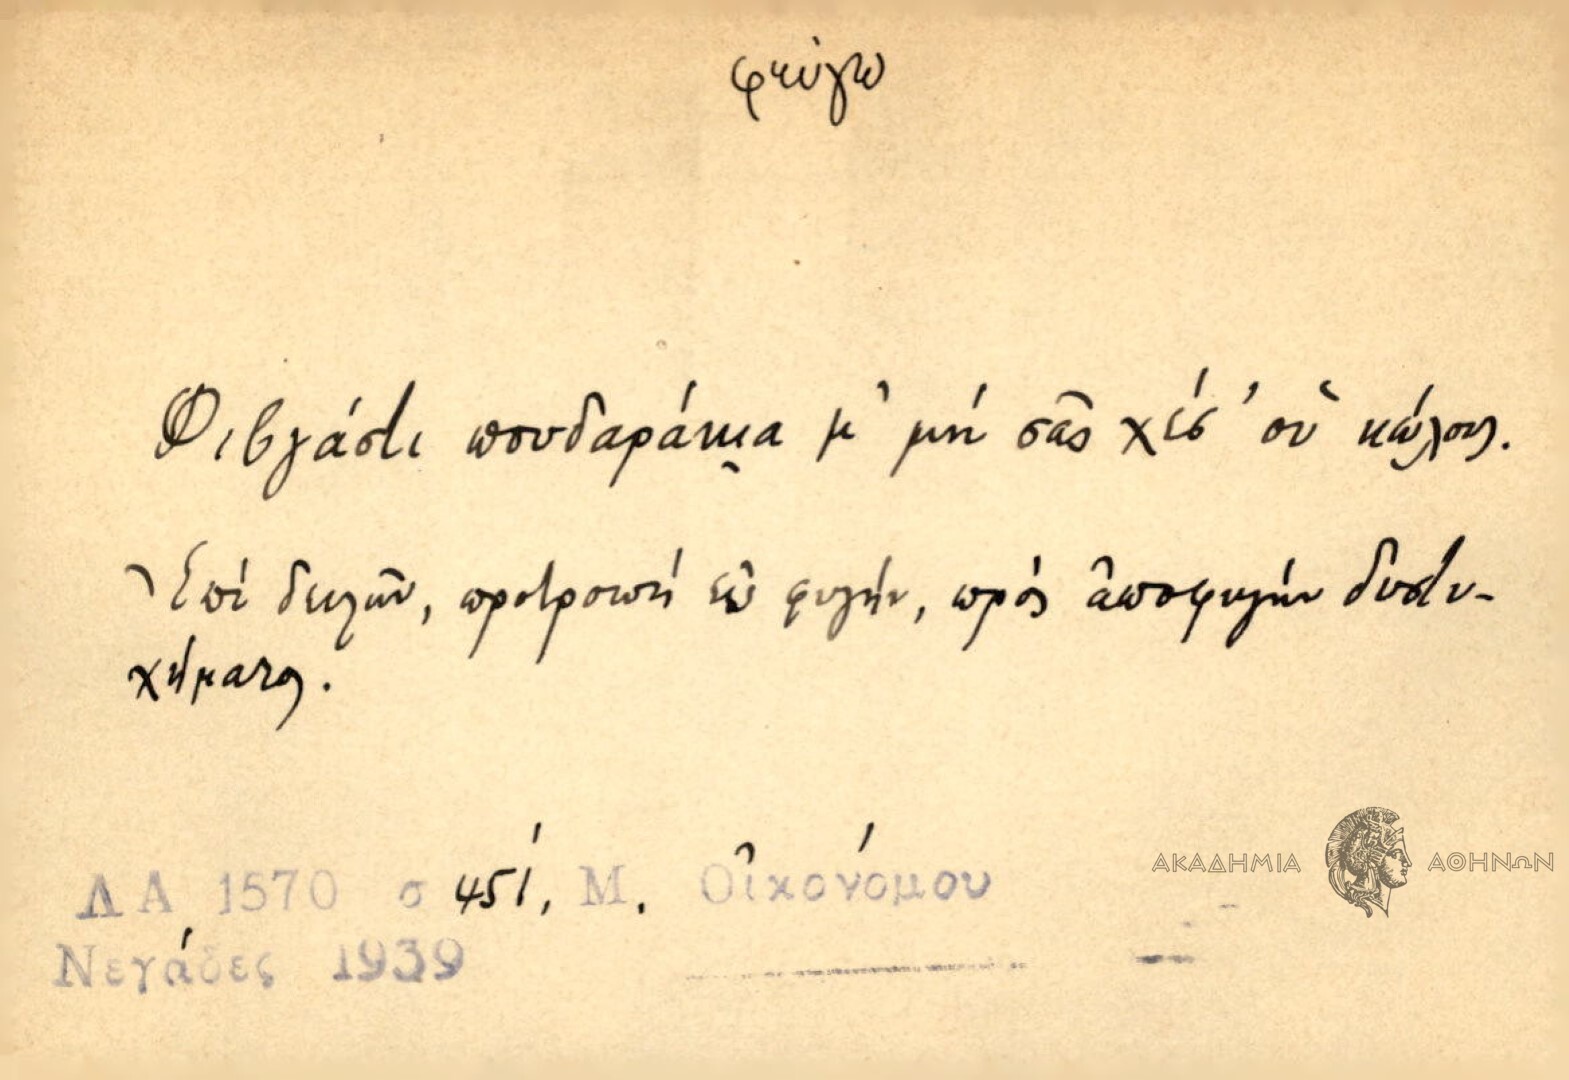 φεύγω
Φιβγάστι ποδαράκια μ' μή σᾶς χέσ' οὑ κῶλους.
Ἐπί δειλῶν, προτροπή εἰς φυγήν, πρός ἀποφυγήν δυστυ-
χήματος.
ΛΑ 1570 σ 451, Μ. Οἰκονόμου
Νεγάδες 1939
ΑΚΑΔΗΜΙΑ ΑΘΗΝΩΝ